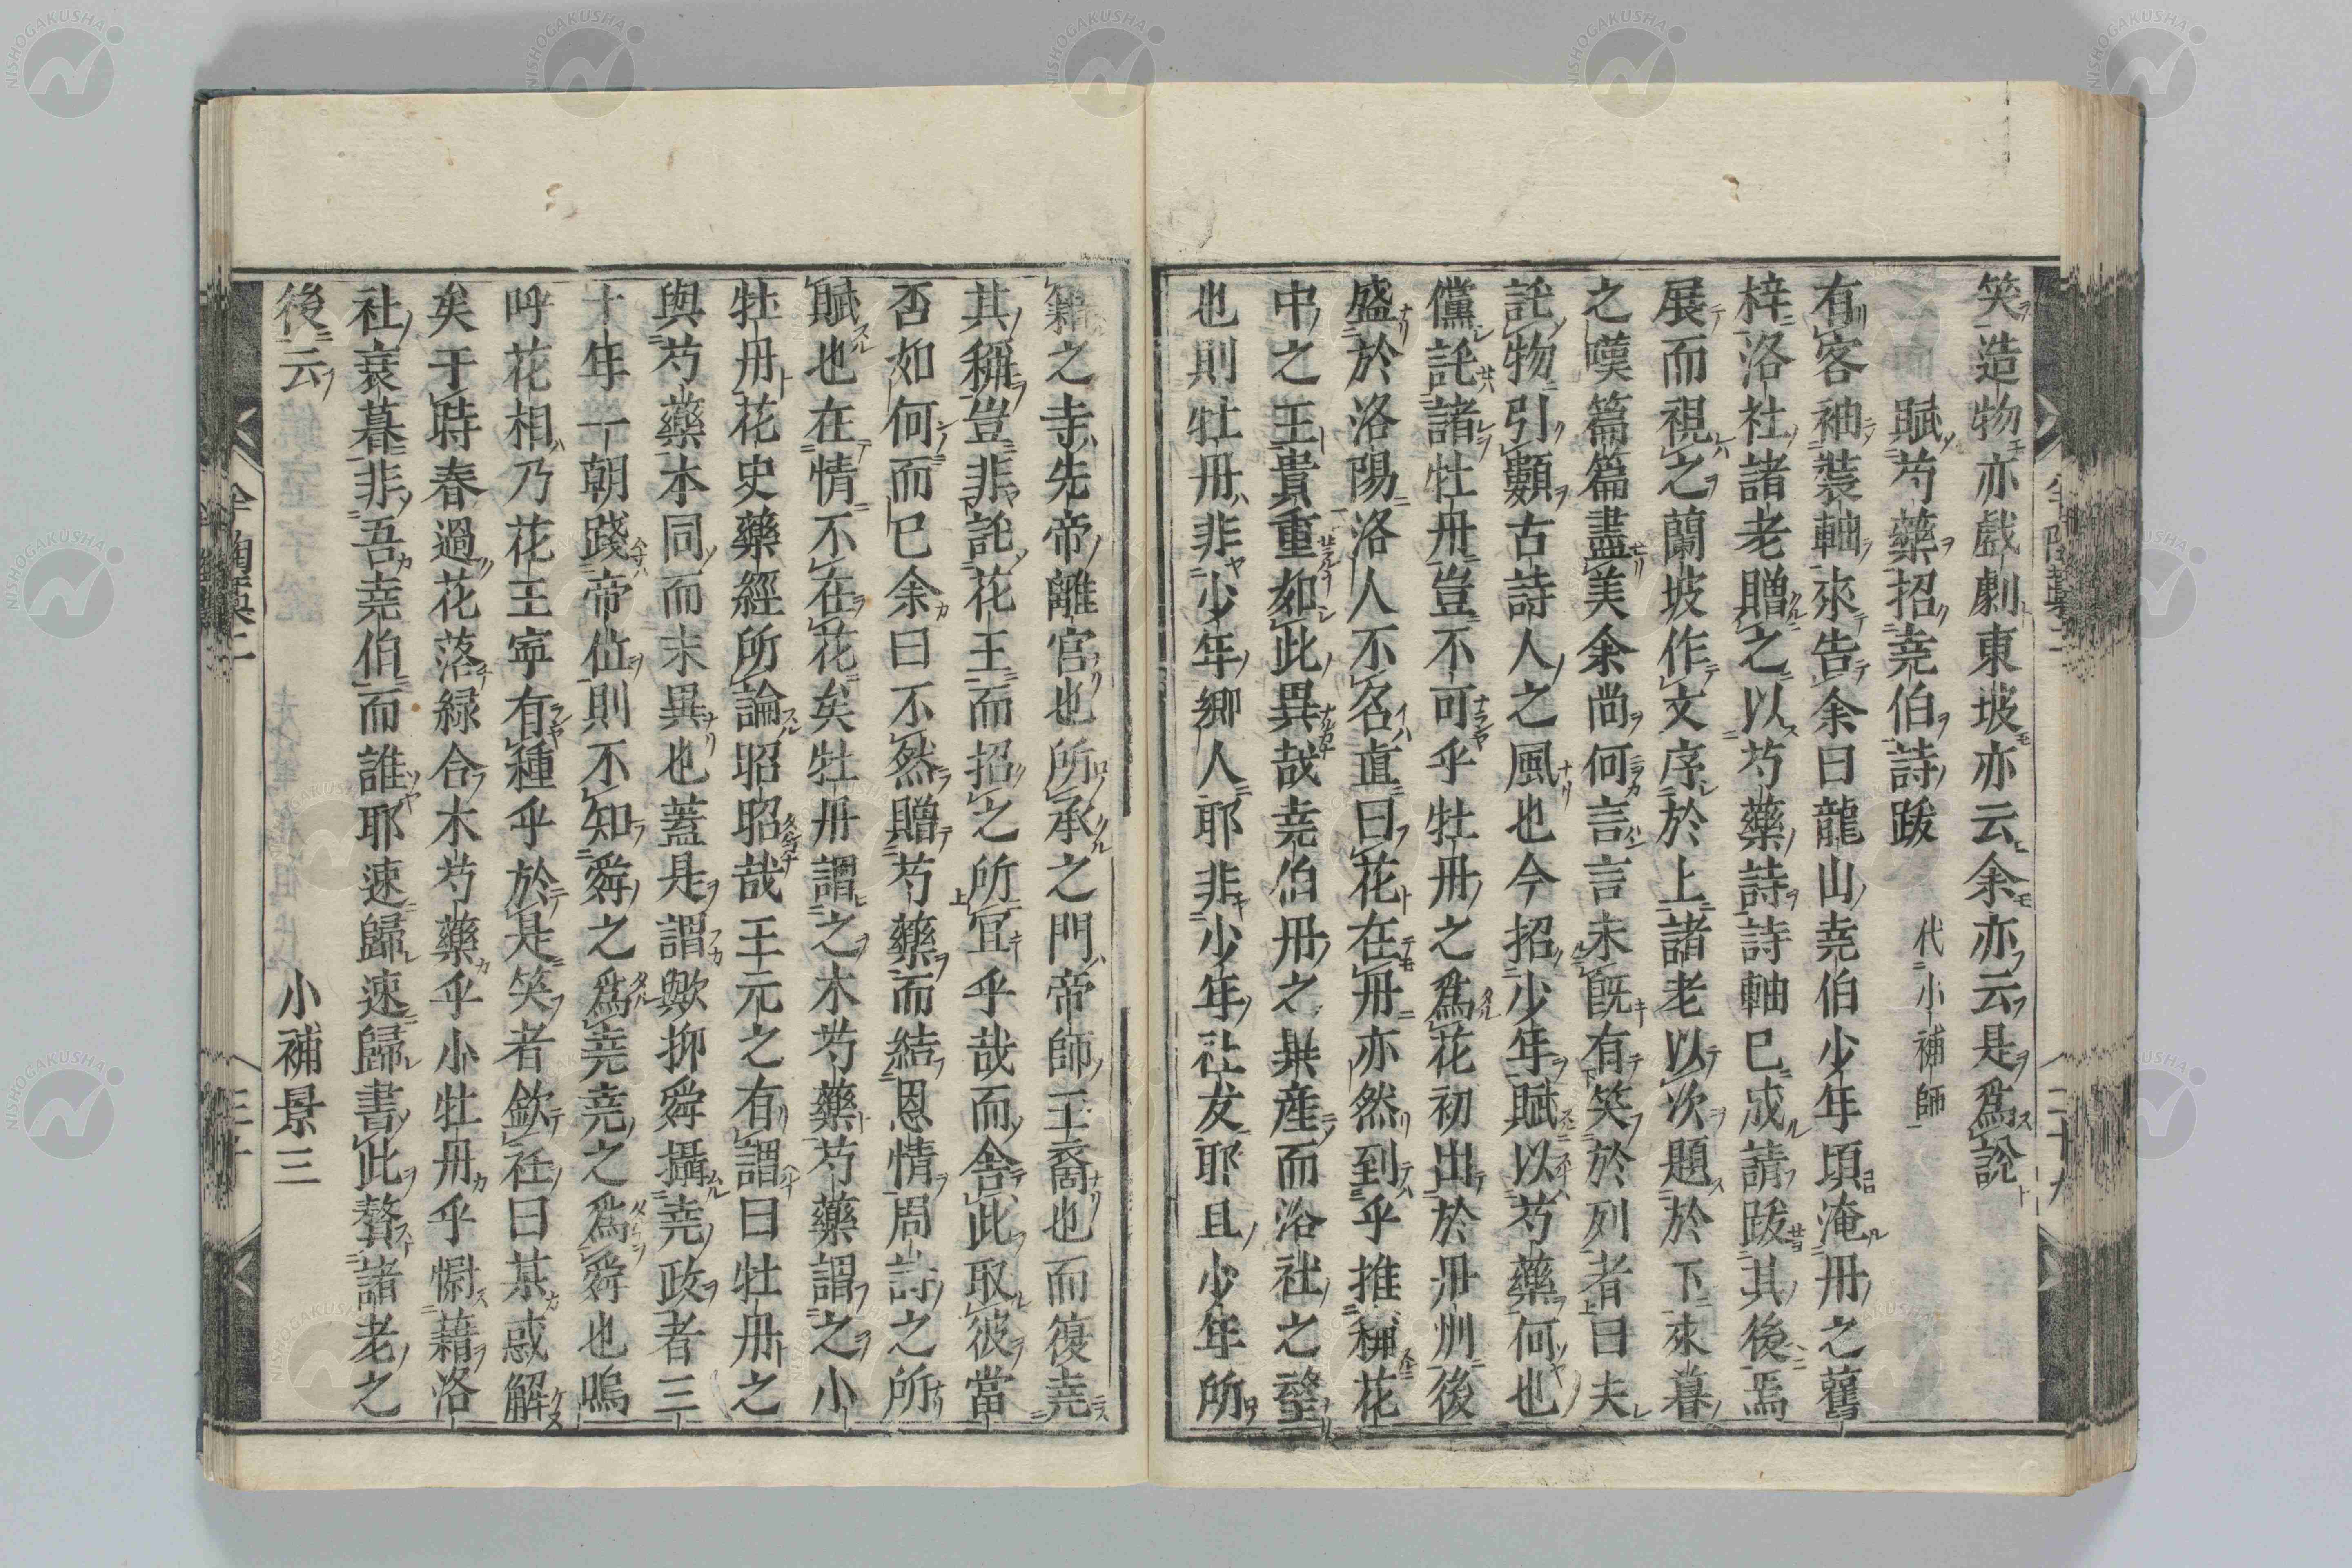 笑造物亦戲劇東坡亦云余亦云是爲說
賦芍藥招堯伯詩跋　代小補師
有客袖裝軸來告余曰龍山堯伯少年頃淹丹之舊
梓洛社諸老贈之以芍藥詩詩軸已成請跋其後焉
展而視之蘭坡作文序於上諸老以次題於下來暮
之嘆篇篇盡美余尚何言言未既有笑於列者曰夫
託物引類古詩人之風也今招少年賦以芍藥何也
儻託諸牡丹豈不可乎牡丹之爲花初出於丹州後
盛於洛陽洛人不名直曰花在丹亦然到乎推稱花
中之王貴重如此異哉堯伯丹之産而洛社之望
也則牡丹非少年鄉人耶非少年社友耶且少年所
籍之寺先帝離宮也所承之門帝師王裔也而復堯
其稱豈非託花王而招之所宜乎哉而舍此取彼當
否如何而已余曰不然贈芍藥而結恩情周詩之所
賦也在情不在花矣牡丹謂之木芍藥芍藥謂之小
牡丹花史藥經所論昭昭哉王元之有謂曰牡丹之
與芍藥本同而末異也蓋是謂歟抑舜攝堯政者三
十年一朝踐帝位則不知舜之爲堯堯之爲舜也嗚
呼花相乃花王寧有種乎於是笑者欽衽曰某惑解
矣于時春過花落綠合木芍藥乎小牡丹乎慰藉洛
社衰暮非吾堯伯而誰耶速歸速歸書此贅諸老之
後云　小補景三